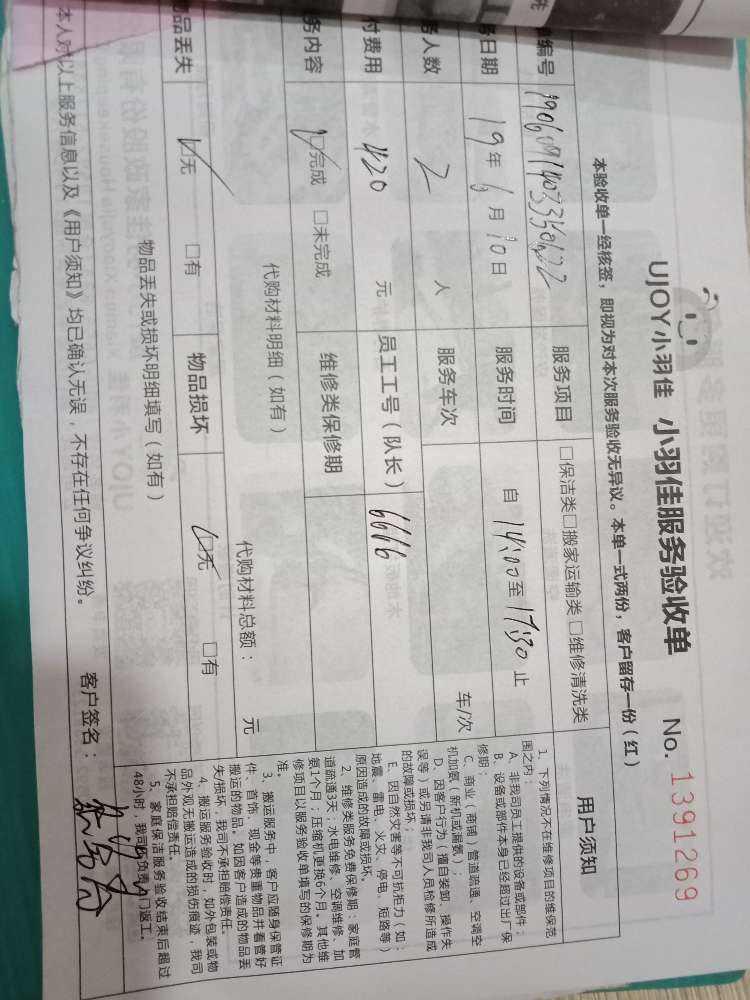 UJOY小羽佳 小羽佳服务验收单 No. 1391269
本验收单一经核签，即视为对本次服务验收无异议。本单一式两份，客户留存一份（红）
编号 服务项目 □保洁类□搬家运输类□维修清洗类
务日期 19年6月10日 服务时间 自14:00至17:30止
务人数 2人 服务车次 车/次
付费用 420元 员工工号（队长） 6666
务内容 □完成 □未完成 维修类保修期
代购材料明细（如有） 代购材料总额： 元
物品丢失 □无 □有 物品损坏 □无 □有
物品丢失或损坏明细填写（如有）
本人对以上服务信息以及《用户须知》均已确认无误，不存在任何争议纠纷。 客户签名：
用户须知
1、下列情况不在维修项目的维保范
围之内：
A、非我司员工提供的设备或部件；
B、设备或部件本身已经超过出厂保
修期；
C、商业（商铺）管道疏通、空调空
机加氨（新机或漏氨）；
D、因客户行为（擅自装卸、操作失
误等）或另请非我司人员检修所造成
的故障或损坏；
E、因自然灾害等不可抗拒力（如：
地震、雷电、火灾、停电、短路等）
原因造成的故障或损坏。
2、维修类服务免费保修期：家庭管
道疏通3天；水电维修、空调维修、加
氨1个月；压缩机更换6个月。其他维
修项目以服务验收单填写的保修期为
准。
3、搬运服务中，客户应随身保管证
件、首饰、现金等贵重物品并看管好
搬运的物品。如因客户造成的物品丢
失/损坏，我司不承担赔偿责任。
4、搬运服务验收时，如外包装或物
品外观无搬运造成的损伤痕迹，我司
不承担赔偿责任。
5、家庭保洁服务验收结束后超过
48小时，我司不负责上门返工。